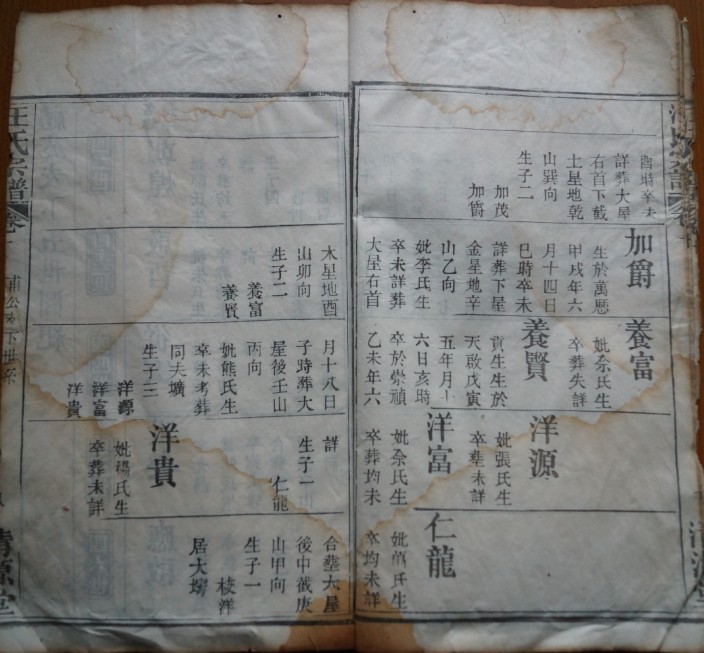 酉時卒未
詳葬大屋
右首下截
土星地乾
山巽向
生子二
加茂
加爵
加爵
生於萬歷
甲戌年六
月十四日
巳時卒未
詳葬下屋
金星地辛
山乙向
妣李氏生
卒未詳葬
大屋右首
木星地酉
山卯向
生子二
養富
養賢
養富
妣余氏生
卒葬失詳
養賢
貢生生於
天啟戊寅
五年月
六日亥時
卒於崇禎
乙未年六
月十八日
子時葬大
屋後壬山
丙向
妣熊氏生
卒未考葬
同夫壙
生子三
洋源
洋富
洋貴
洋源
妣張氏生
卒塟未詳
洋富
妣余氏生
卒葬均未
詳
生子一
仁龍
洋貴
妣楊氏生
卒葬未詳
仁龍
妣萬氏生
卒均未詳
合塟大屋
後中截庚
山甲向
生子一
枝洋
居大塆
汪氏宗譜 卷
下世系
清源堂